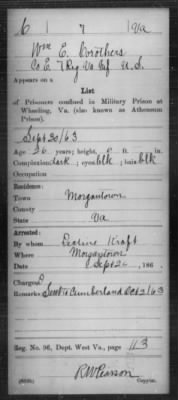 6 | 7 | Va
Wm E. Corothers
Co E, 7 Reg Va Inf U.S.
Appears on a
List
of Prisoners confined in Military Prison at
Wheeling, Va. (also known as Athenæum
Prison).
Sept 20/63
Age 26 years; height, 6 ft. in.
Complexion dark; eyes blk; hair blk
Occupation
Residence:
Town Morgantown
County
State Va
Arrested:
By whom Kraft
Where Morgantown
Date Sept 20, 186 .
Charges
Remarks Sent to Cumberland Oct 2/63
Reg. No. 96, Dept. West Va., page 113
RW Pearson
Copyist.